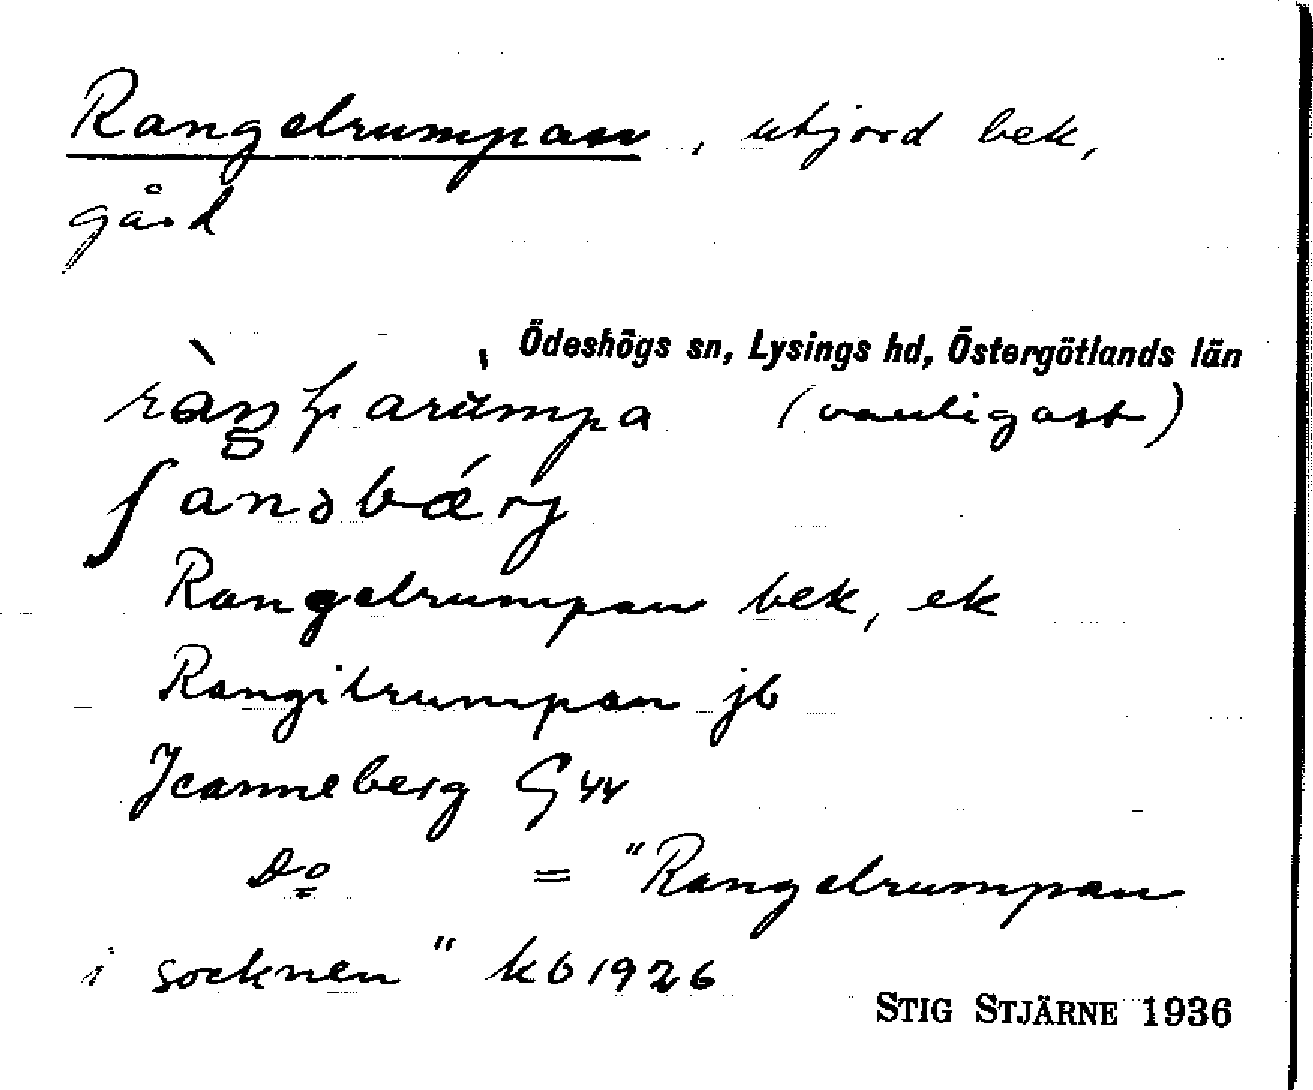 Rangelrumpan, utjord bek,
gård
Ödeshögs sn, Lysings hd, Östergötlands län
(vanligast)
Rangelrumpan bek, ek
Rangilrumpan jb
Jeanneberg G 44
Do = "Rangelrumpan
i socknen" kb 1926
STIG STJÄRNE 1936